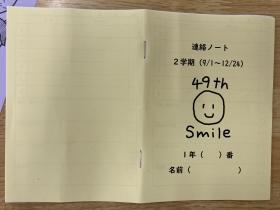 連絡ノート
2学期(9/1~12/24)
49th
Smile
1年(  )番
名前(     )